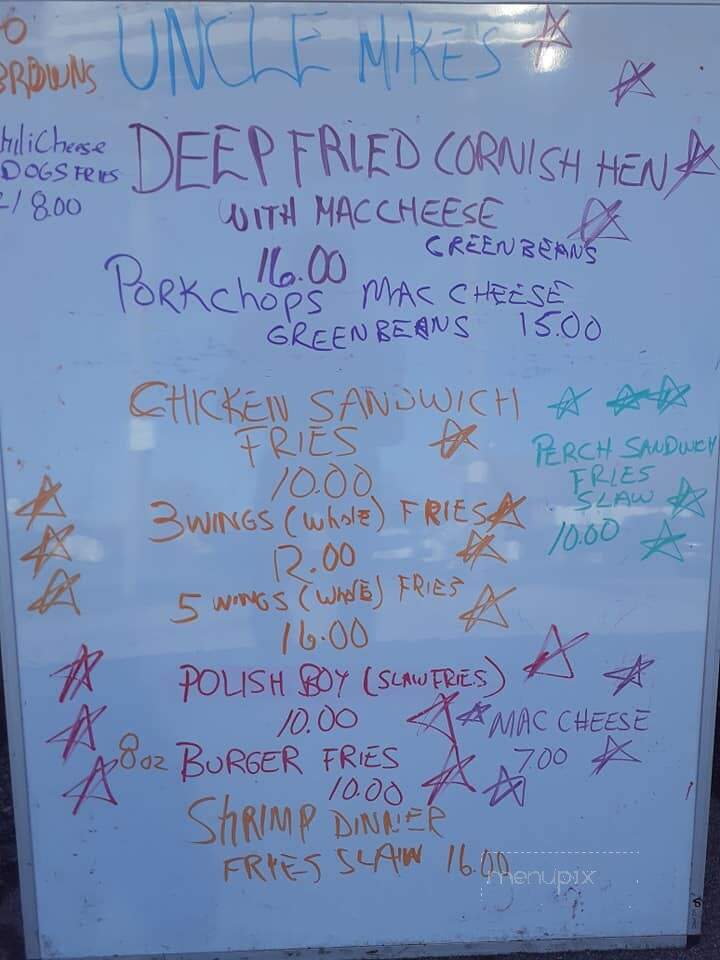 UNCLE MIKE'S
BROWNS
DEEP FRIED CORNISH HEN
WITH MAC CHEESE
GREEN BEANS
16.00
Cheese
DOGS FRIES
2/8.00
PORKCHOPS MAC CHEESE
GREEN BEANS 15.00
CHICKEN SANDWICH
FRIES
10.00
PERCH SANDWICH
FRIES
SLAW
10.00
3 WINGS (WHOLE) FRIES
12.00
5 WINGS (WHOLE) FRIES
16.00
POLISH BOY (SLAW FRIES)
10.00
MAC CHEESE
7.00
8oz BURGER FRIES
10.00
SHRIMP DINNER
FRYES SLAW 16.00
menupix